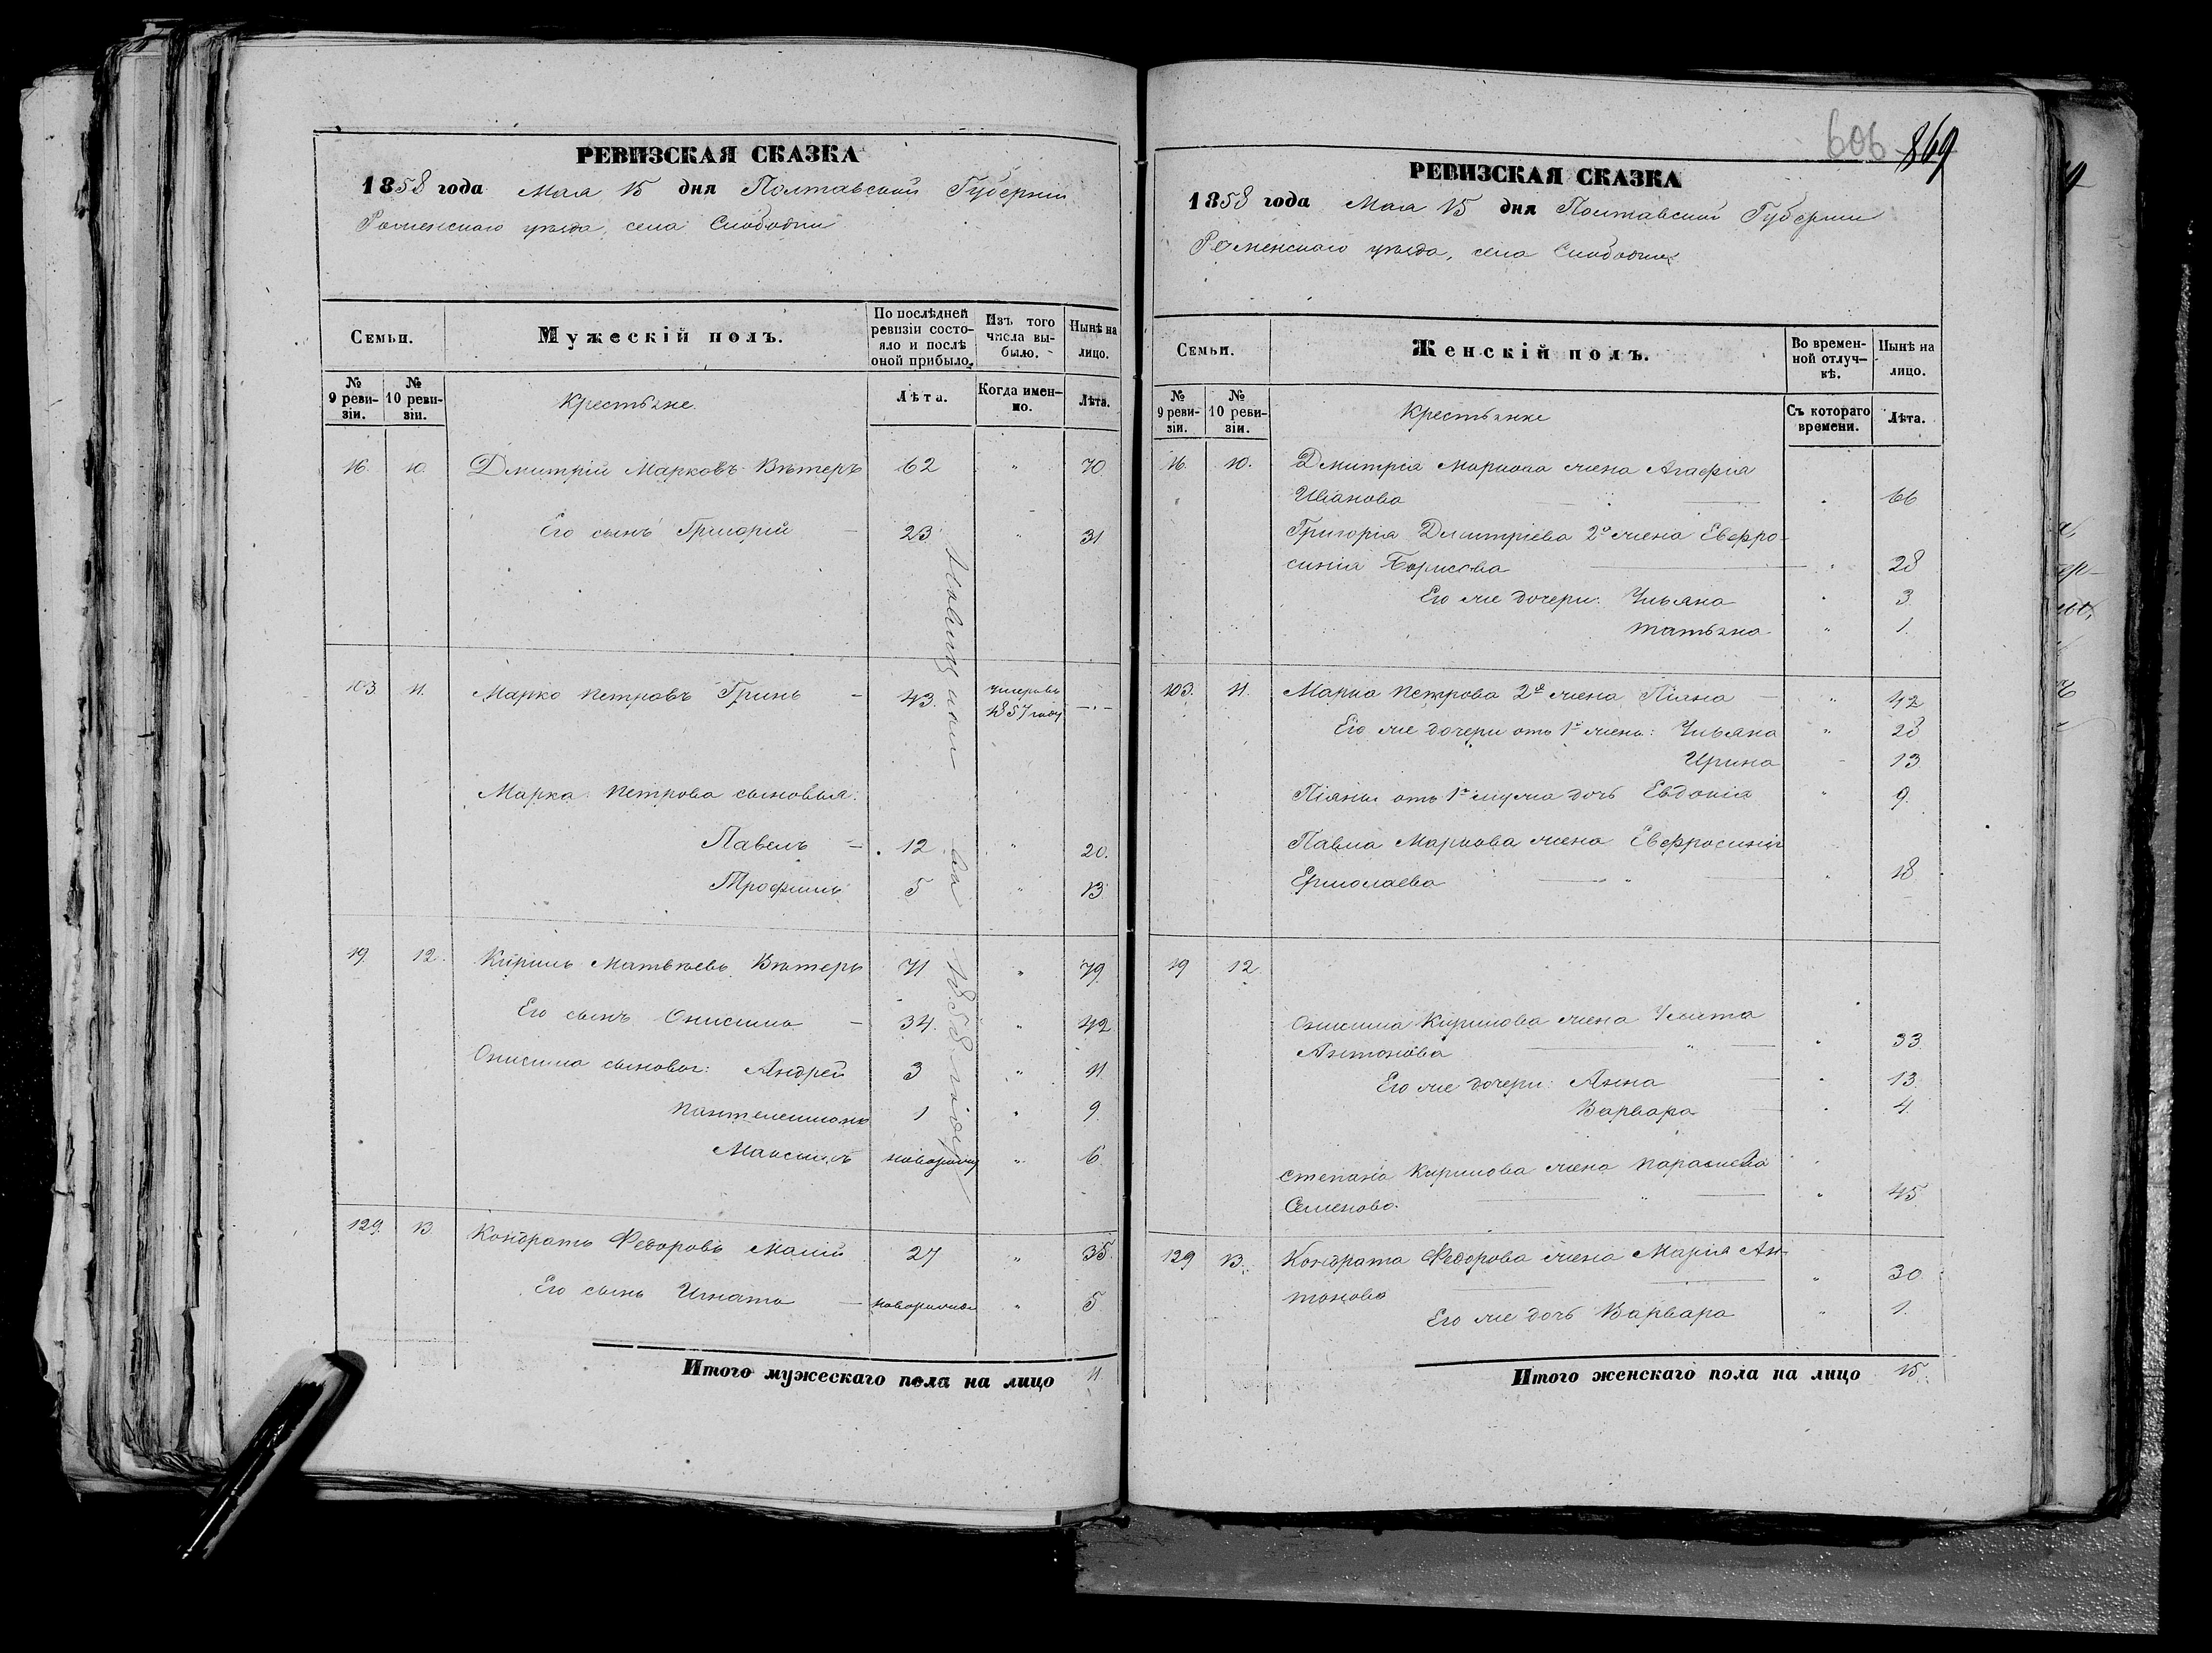 РЕВИЗСКАЯ СКАЗКА
1858 года Мая 15 дня Полтавской Губерніи
Роменскаго уѣзда, села Слободки
Семьи.
Мужескій полъ.
По послѣдней ревизіи состо-
яло и послѣ
оной прибыло.
Изъ того
числа вы-
было.
Нынѣ на
лицо.
№ 9 реви-
зіи.
№ 10 реви-
зіи.
Крестьяне.
Лѣта.
Когда имен-
но.
Лѣта.
16. 10. Дмитрій Марковъ Вѣтеръ 62 " 70.
Его сынъ Григорій 23 " 31
103. 11. Марко Петровъ Гринь 43. умеръ въ
1857 году
Марка Петрова сыновья:
Павелъ 12 " 20.
Трофимъ 5 " 13
19. 12. Кирилъ Матвѣевъ Вѣтеръ 71 " 79.
Его сынъ Онисимъ 34. " 42
Онисима сыновья: Андрей 3 " 11.
Пантелеимонъ 1 " 9
Максимъ новорожд " 6
129. 13. Кондратъ Федоровъ Малій 27 " 35.
Его сынъ Игнатъ новорожден " 5
Итого мужескаго пола на лицо 11.
1858 году
606 869
РЕВИЗСКАЯ СКАЗКА
1858 года Мая 15 дня Полтавской Губерніи
Роменскаго уѣзда, села Слободки
Семьи.
Женскій полъ.
Во времен-
ной отлуч-
кѣ.
Нынѣ на
лицо.
№ 9 реви-
зіи.
№ 10 реви-
зіи.
Крестьянки
Съ котораго
времени.
Лѣта.
16. 10. Дмитрія Маркова жена Агафія
Иванова " 66
Григорія Дмитріева 2я жена Евфро-
синія Борисова " 28
Его же дочери: Ульяна " 3
Татьяна " 1.
103. 11. Марка Петрова 2я жена Ліяна " 42
Его же дочери отъ 1й жены: Ульяна " 28
Ирина 13
Ліяны отъ 1го мужа дочь Евдокія " 9.
Павла Маркова жена Евфросинія
Ермолаева " 18
19 12.
Онисима Кирилова жена Улита
Антонова " 33
Его же дочери: Анна " 13.
Варвара " 4.
Степана Кирилова жена Параскева
Семенова. " 45
129 13. Кондрата Федорова жена Марія Ан-
тонова " 30
Его же дочь Варвара " 1.
Итого женскаго пола на лицо 15.